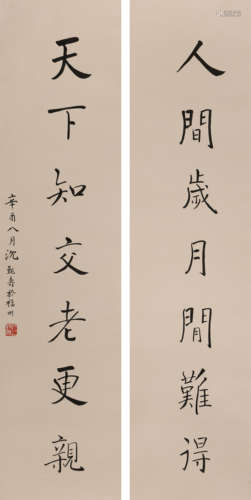 人間歲月閒難得
天下知交老更親
辛酉八月沈觐壽於福州